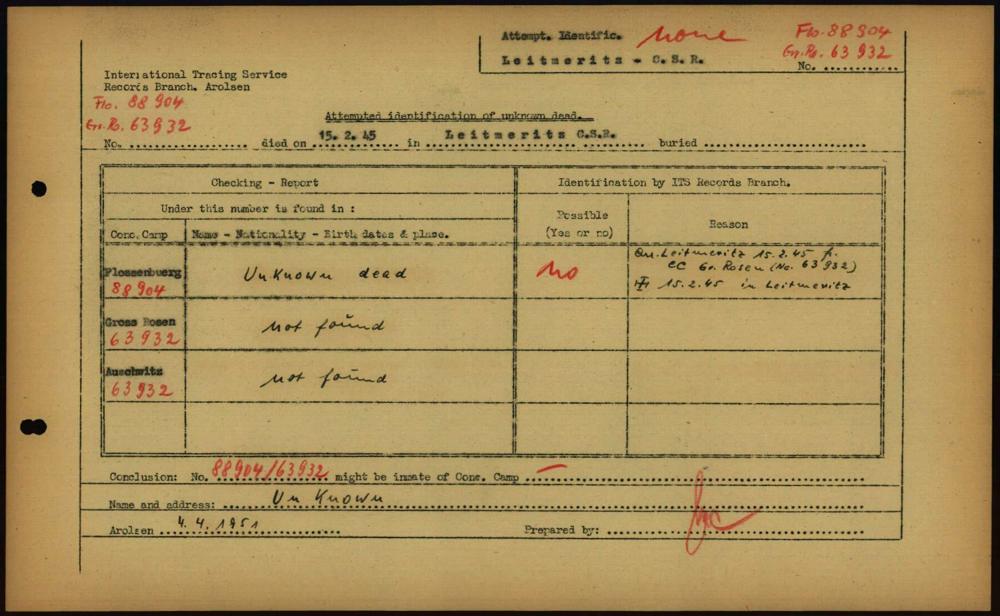 Attempt. Identific. none Flo. 88 904
Gr. Ro. 63 932
Leitmeritz - C. S. R. No. ............
International Tracing Service
Records Branch. Arolsen
Flo. 88 904
Gr. R. 63 932
Attempted identification of unknown dead.
No. ................. died on 15. 2. 45 in Leitmeritz C.S.R. buried ...........................
Checking - Report Identification by ITS Records Branch.
Under this number is found in : Possible
(Yes or no) Reason
Conc. Camp Name - Nationality - Birth dates & place.
Flossenbuerg
88 904 Unknown dead no Leitmeritz 15. 2. 45 fr.
CC Gr. Rosen (No. 63 932)
15. 2. 45 in Leitmeritz
Gross Rosen
63 932 not found
Auschwitz
63 932 not found
Conclusion: No. 88904/63932 might be inmate of Conc. Camp — ...........................
Name and address: Un Known
Arolsen 4. 4. 1951 Prepared by: ...........................